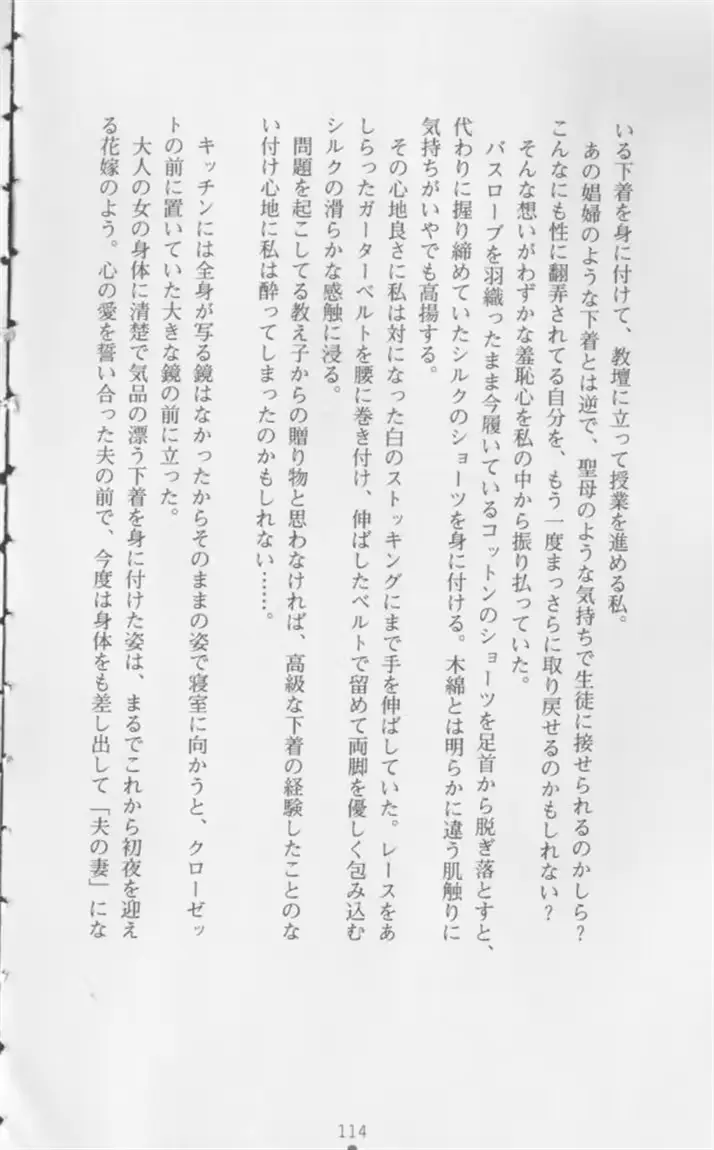 いる下着を身に付けて、教壇に立って授業を進める私。
あの娼婦のような下着とは逆で、聖母のような気持ちで生徒に接せられるのかしら？
こんなにも性に翻弄されてる自分を、もう一度まっさらに取り戻せるのかもしれない？
そんな想いがわずかな羞恥心を私の中から振り払っていた。
バスローブを羽織ったまま今履いているコットンのショーツを足首から脱ぎ落とすと、
代わりに握り締めていたシルクのショーツを身に付ける。木綿とは明らかに違う肌触りに
気持ちがいやでも高揚する。
その心地良さに私は対になった白のストッキングにまで手を伸ばしていた。レースをあ
しらったガーターベルトを腰に巻き付け、伸ばしたベルトで留めて両脚を優しく包み込む
シルクの滑らかな感触に浸る。
問題を起こしてる教え子からの贈り物と思わなければ、高級な下着の経験したことのな
い付け心地に私は酔ってしまったのかもしれない……。
キッチンには全身が写る鏡はなかったからそのままの姿で寝室に向かうと、クローゼッ
トの前に置いていた大きな鏡の前に立った。
大人の女の身体に清楚で気品の漂う下着を身に付けた姿は、まるでこれから初夜を迎え
る花嫁のよう。心の愛を誓い合った夫の前で、今度は身体をも差し出して「夫の妻」にな
114